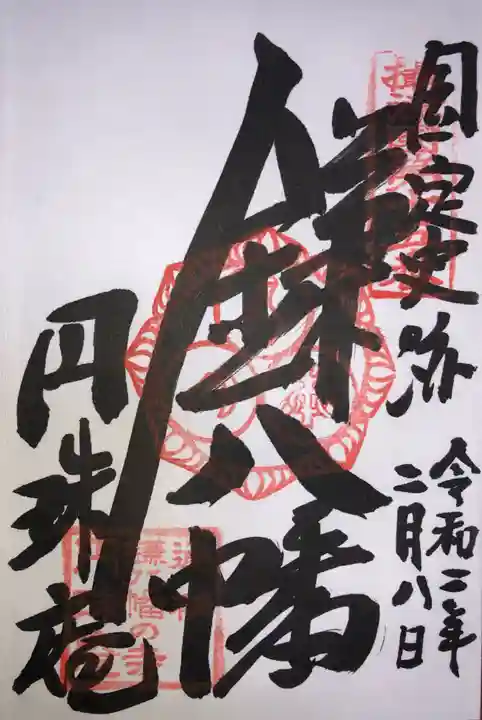 国定史跡
令和二年
二月八日
鎌八幡
円珠庵
鎌八幡の寺